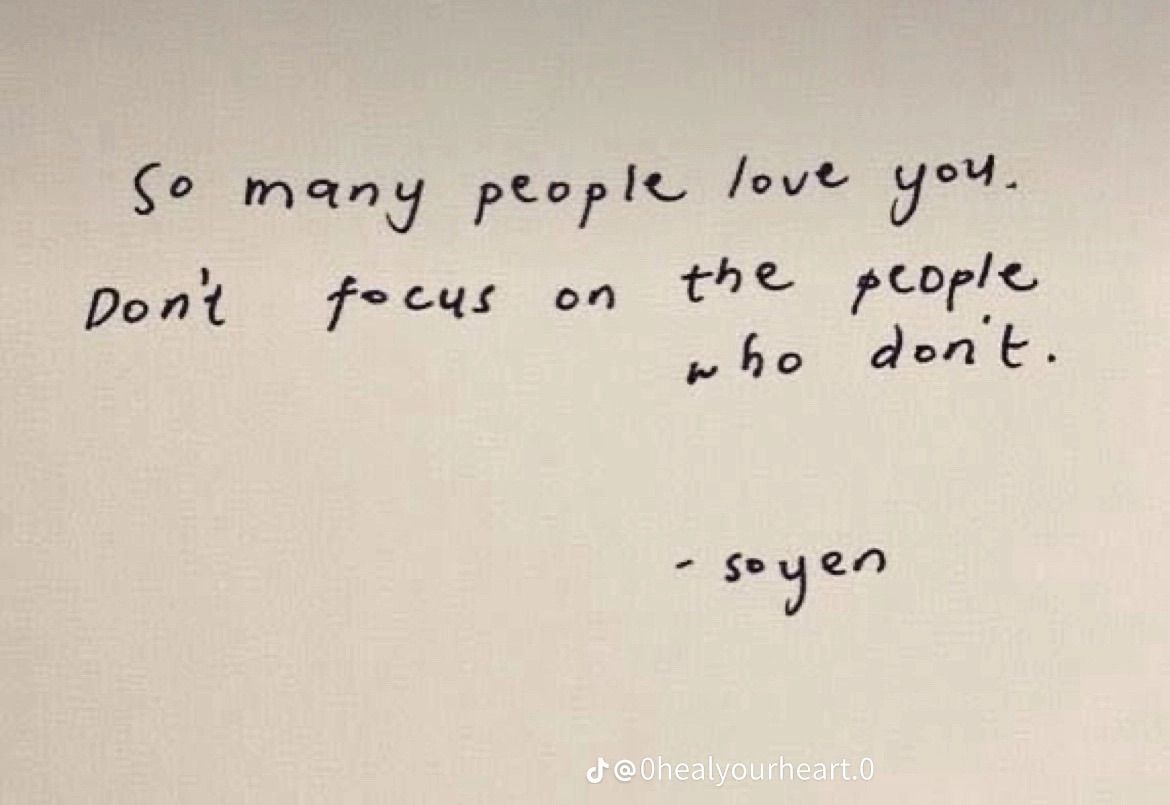 So many people love you.
Don't focus on the people
who don't.
- soyen
@0healyourheart.0